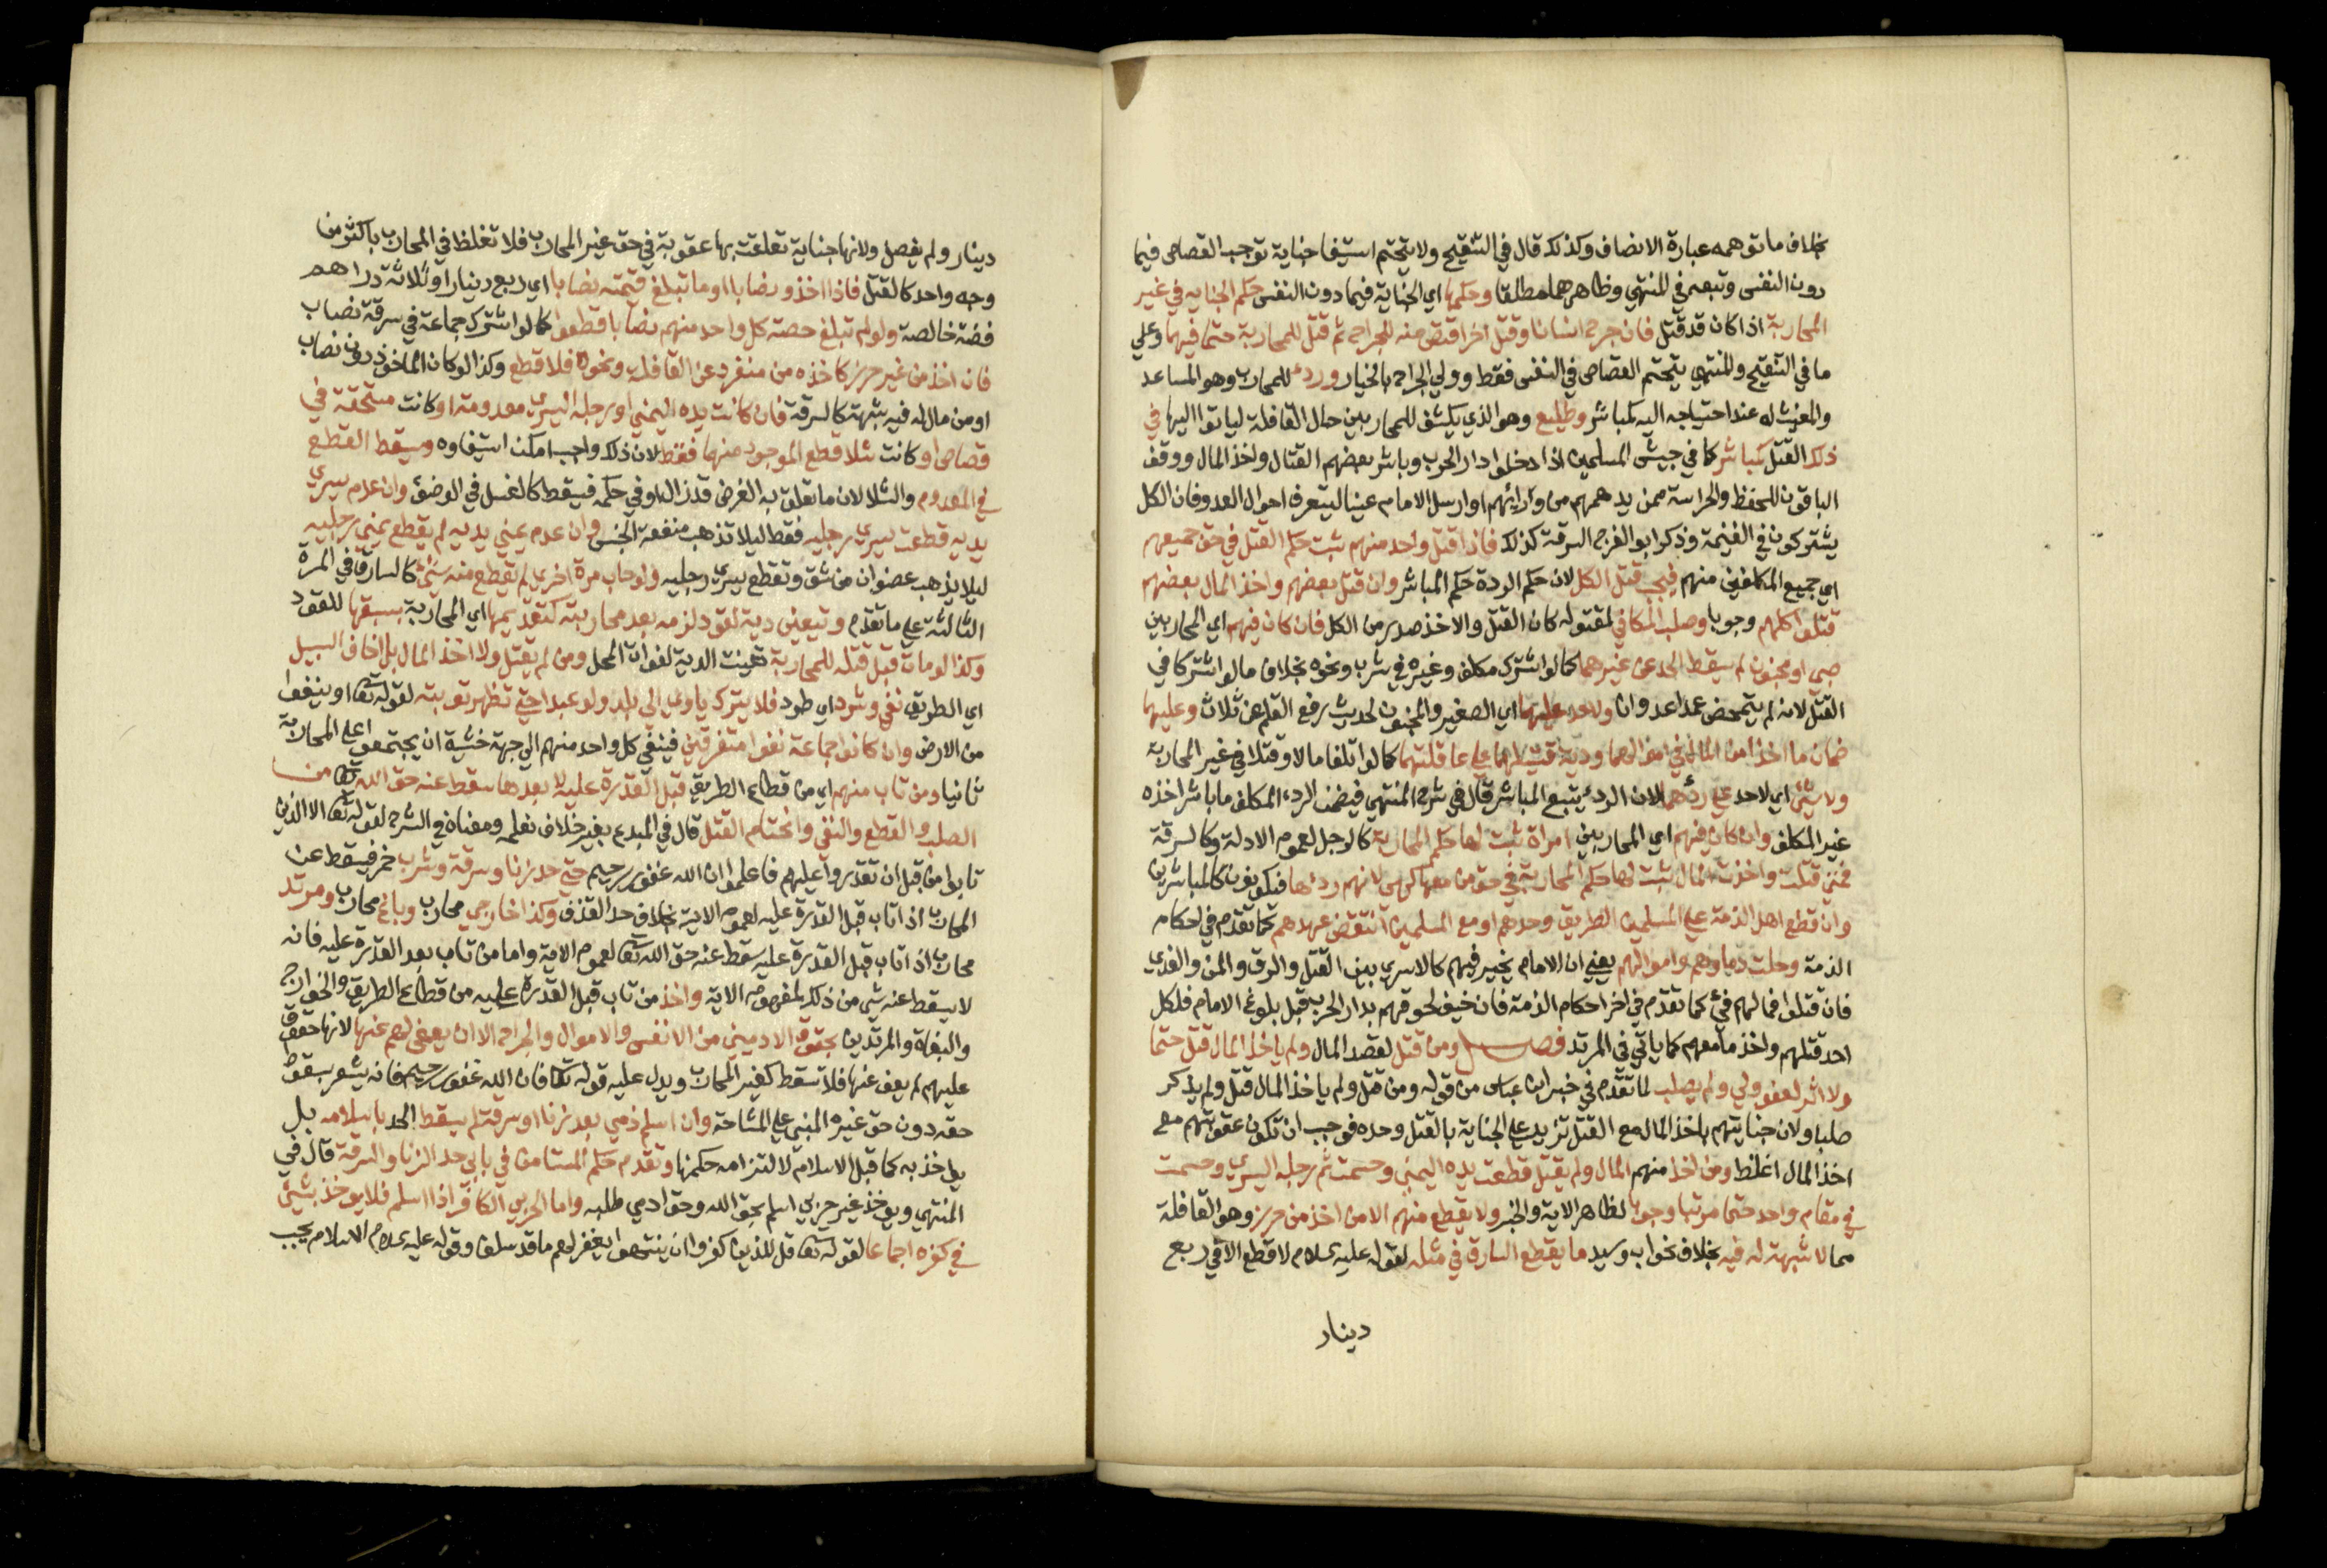 بخلاف ما توهمه عبارة الانصاف وكذلك قال في التنقيح ولا يتحتم استيفا جناية توجب القصاص فيما
دون النفس وتبعه في المنتهي وظاهرهما مطلقا وحكمها اي الجناية فيما دون النفس حكم الجنايه في غير
المحاربة اذا كان قد قتل فان جرح انسانا وقتل اخر اقتص منه للجراح ثم قتل للمحاربة حتما فيهما وعلي
ما في التنقيح والمنتهي يتحتم القصاص في النفس فقط وولي الجراح بالخيار وردء للمحارب وهو المساعد
والمغيث له عند احتياجه اليه كمباشر وطليع وهو الذي يكشف للمحاربين حال القافلة لياتوا اليها في
ذلك القتل كمباشر كما في جيش المسلمين اذا دخلوا دار الحرب وباشر بعضهم القتال واخذ المال ووقف
الباقون للحفظ والحراسة ممن يدهمهم من ورائهم او ارسل الامام عينا ليتعرف احوال العدو فان الكل
يشتركون في الغنيمة وذكر ابو الفرج السرقة كذلك فاذا قتل واحد منهم ثبت حكم القتل في حق جميعهم
اي جميع المكلفين منهم فيجب قتل الكل لان حكم الردة حكم المباشر وان قتل بعضهم واخذ المال بعضهم
قتلوا كلهم وجوبا وصلب المكافي لمقتوله كان القتل والاخذ صدر من الكل فان كان فيهم اي المحاربين
صبي او مجنون لم يسقط الحد عن غيرهما كما لو اشترك مكلف وغيره في شرب ونحوه بخلاف ما لو اشتركا في
القتل لانه لم يتمحض عمدا عدوانا ولا حد عليهما اي الصغير والمجنون لحديث رفع القلم عن ثلاث وعليهما
ضمان ما اخذا من المال في اموالهما ودية قتيلهما علي عاقلتهما كما لو اتلفا مالا او قتلا في غير المحاربة
ولا شيئ اي لا حد علي ردءهما لان الردء يتبع المباشر قال في شرح المنتهي فيضمن الردء المكلف ما باشر اخذه
غير المكلف وان كان فيهم اي المحاربين امراة ثبت لها حكم المحاربة كالرجل لعموم الادلة وكالسرقة
فمتي قتلت واخذت المال ثبت لها حكم المحاربة في حق من معها كهي لانهم ردءها فيكونون كالمباشرين
وان قطع اهل الذمة علي المسلمين الطريق وحدهم او مع المسلمين انتقض عهدهم كما تقدم في احكام
الذمة وحلت دماوهم واموالهم يعني ان الامام يخير فيهم كالاسري بين القتل والرق والمن والفدي
فان قتلوا فمالهم فيئ كما تقدم في اخر احكام الذمة فان خيف لحوقهم بدار الحرب قبل بلوغ الامام فلكل
احد قتلهم واخذ ما معهم كما ياتي في المرتد فصل ومن قتل لقصد المال ولم ياخذ المال قتل حتما
ولا اثر لعفو ولي ولم يصلب لما تقدم في خبر ابن عباس من قوله ومن قتل ولم ياخذ المال قتل ولم يذكر
صلبا ولان جنايتهم باخذ المال مع القتل تزيد علي الجناية بالقتل وحده فوجب ان تكون عقوبتهم مع
اخذ المال اغلظ ومن اخذ منهم المال ولم يقتل قطعت يده اليمني وحسمت ثم رجله اليسري وحسمت
في مقام واحد حتما مرتبا وجوبا لظاهر الاية والخبر ولا يقطع منهم الا من اخذ من حرز وهو القافلة
مما لا شبهة له فيه بخلاف نحو اب وسيد ما يقطع السارق في مثله لقوله عليه السلام لا قطع الا في ربع
دينار
دينار ولم يفصل ولانها جناية تعلقت بها عقوبة في حق غير المحارب فلا تغلظ في المحارب باكثر من
وجه واحد كالقتل فاذا اخذوا نصابا او ما تبلغ قيمته نصابا اي ربع دينار او ثلاثة دراهم
فضة خالصة ولو لم تبلغ حصة كل واحد منهم نصابا قطعوا كما لو اشترك جماعة في سرقة نصاب
فان اخذ من غير حرز كاخذه من منفرد عن القافلة ونحوه فلا قطع وكذا لو كان الماخوذ دون نصاب
او من مال له فيه شبهة كالسرقة فان كانت يده اليمني او رجله اليسري معدومة او كانت مستحقة في
قصاص او كانت شلا قطع الموجود منهما فقط لان ذلك واجب امكن استيفاوه وسقط القطع
في المعدوم والشلا لان ما تعلق به الغرض قد زال او في حكمه فيسقط كالغسل في الوضو وان عدم يسري
يديه قطعت يسري رجليه فقط ليلا تذهب منفعة الجنس وان عدم يمني يديه لم يقطع يمني رجليه
ليلا يذهب عضوان من شق وتقطع يسري رجليه ولو حارب مرة اخري لم يقطع منه شيئ كالسارق في المرة
الثالثة علي ما تقدم وتتعين دية لقود لزمه بعد محاربته كتقديمها اي المحاربة بسبقها للقود
وكذا لو مات قبل قتله للمحاربة تعينت الدية لفوات المحل ومن لم يقتل ولا اخذ المال بل اخاف السبيل
اي الطريق نفي وشرد اي طرد فلا يترك ياوي الي بلد ولو عبدا حتي تظهر توبته لقوله تعا او ينفوا
من الارض وان كانوا جماعة نفوا متفرقين فينفي كل واحد منهم الي جهة خشية ان يجتمعوا علي المحاربة
ثانيا ومن تاب منهم اي من قطاع الطريق قبل القدرة عليه لا بعدها سقط عنه حق الله تعا من
الصلب والقطع والنفي وانحتام القتل قال في المبدع بغير خلاف نعلمه ومعناه في الشرح لقوله تعا الا الذين
تابوا من قبل ان تقدروا عليهم فاعلموا ان الله غفور رحيم حتي حد زنا وسرقة وشرب خمر فيسقط عن
المحارب اذا تاب قبل القدرة عليه لعموم الاية بخلاف حد القذف وكذا خارجي محارب وباغ محارب ومرتد
محارب اذا تاب قبل القدرة عليه سقط عنه حق الله تعا لعموم الاية واما من تاب بعد القدرة عليه فانه
لا يسقط عنه شي من ذلك لمفهوم الاية واخذ من تاب قبل القدرة عليه من قطاع الطريق والخوارج
والبغاة والمرتدين بحقوق الادميين من الانفس والاموال والجراح الا ان يعفي لهم عنها لانها حقوق
عليهم لم يعف عنها فلا تسقط كغير المحارب ويدل عليه قوله تعا فان الله غفور رحيم فانه يشعر بسقوط
حقه دون حق غيره المبني علي المشاحة وان اسلم ذمي بعد زنا او سرقة لم يسقط الحد باسلامه بل
يواخذ به كما قبل الاسلام لالتزامه حكمنا وتقدم حكم المستامن في بابي حد الزنا والسرقة قال في
المنتهي ويوخذ غير حربي اسلم بحق الله وحق ادمي طلبه واما الحربي الكافر اذا اسلم فلا يوخذ بشيئ
في كفره اجماعا لقوله تعا قل للذين كفروا ان ينتهوا يغفر لهم ما قد سلف وقوله عليه السلام الاسلام يجب